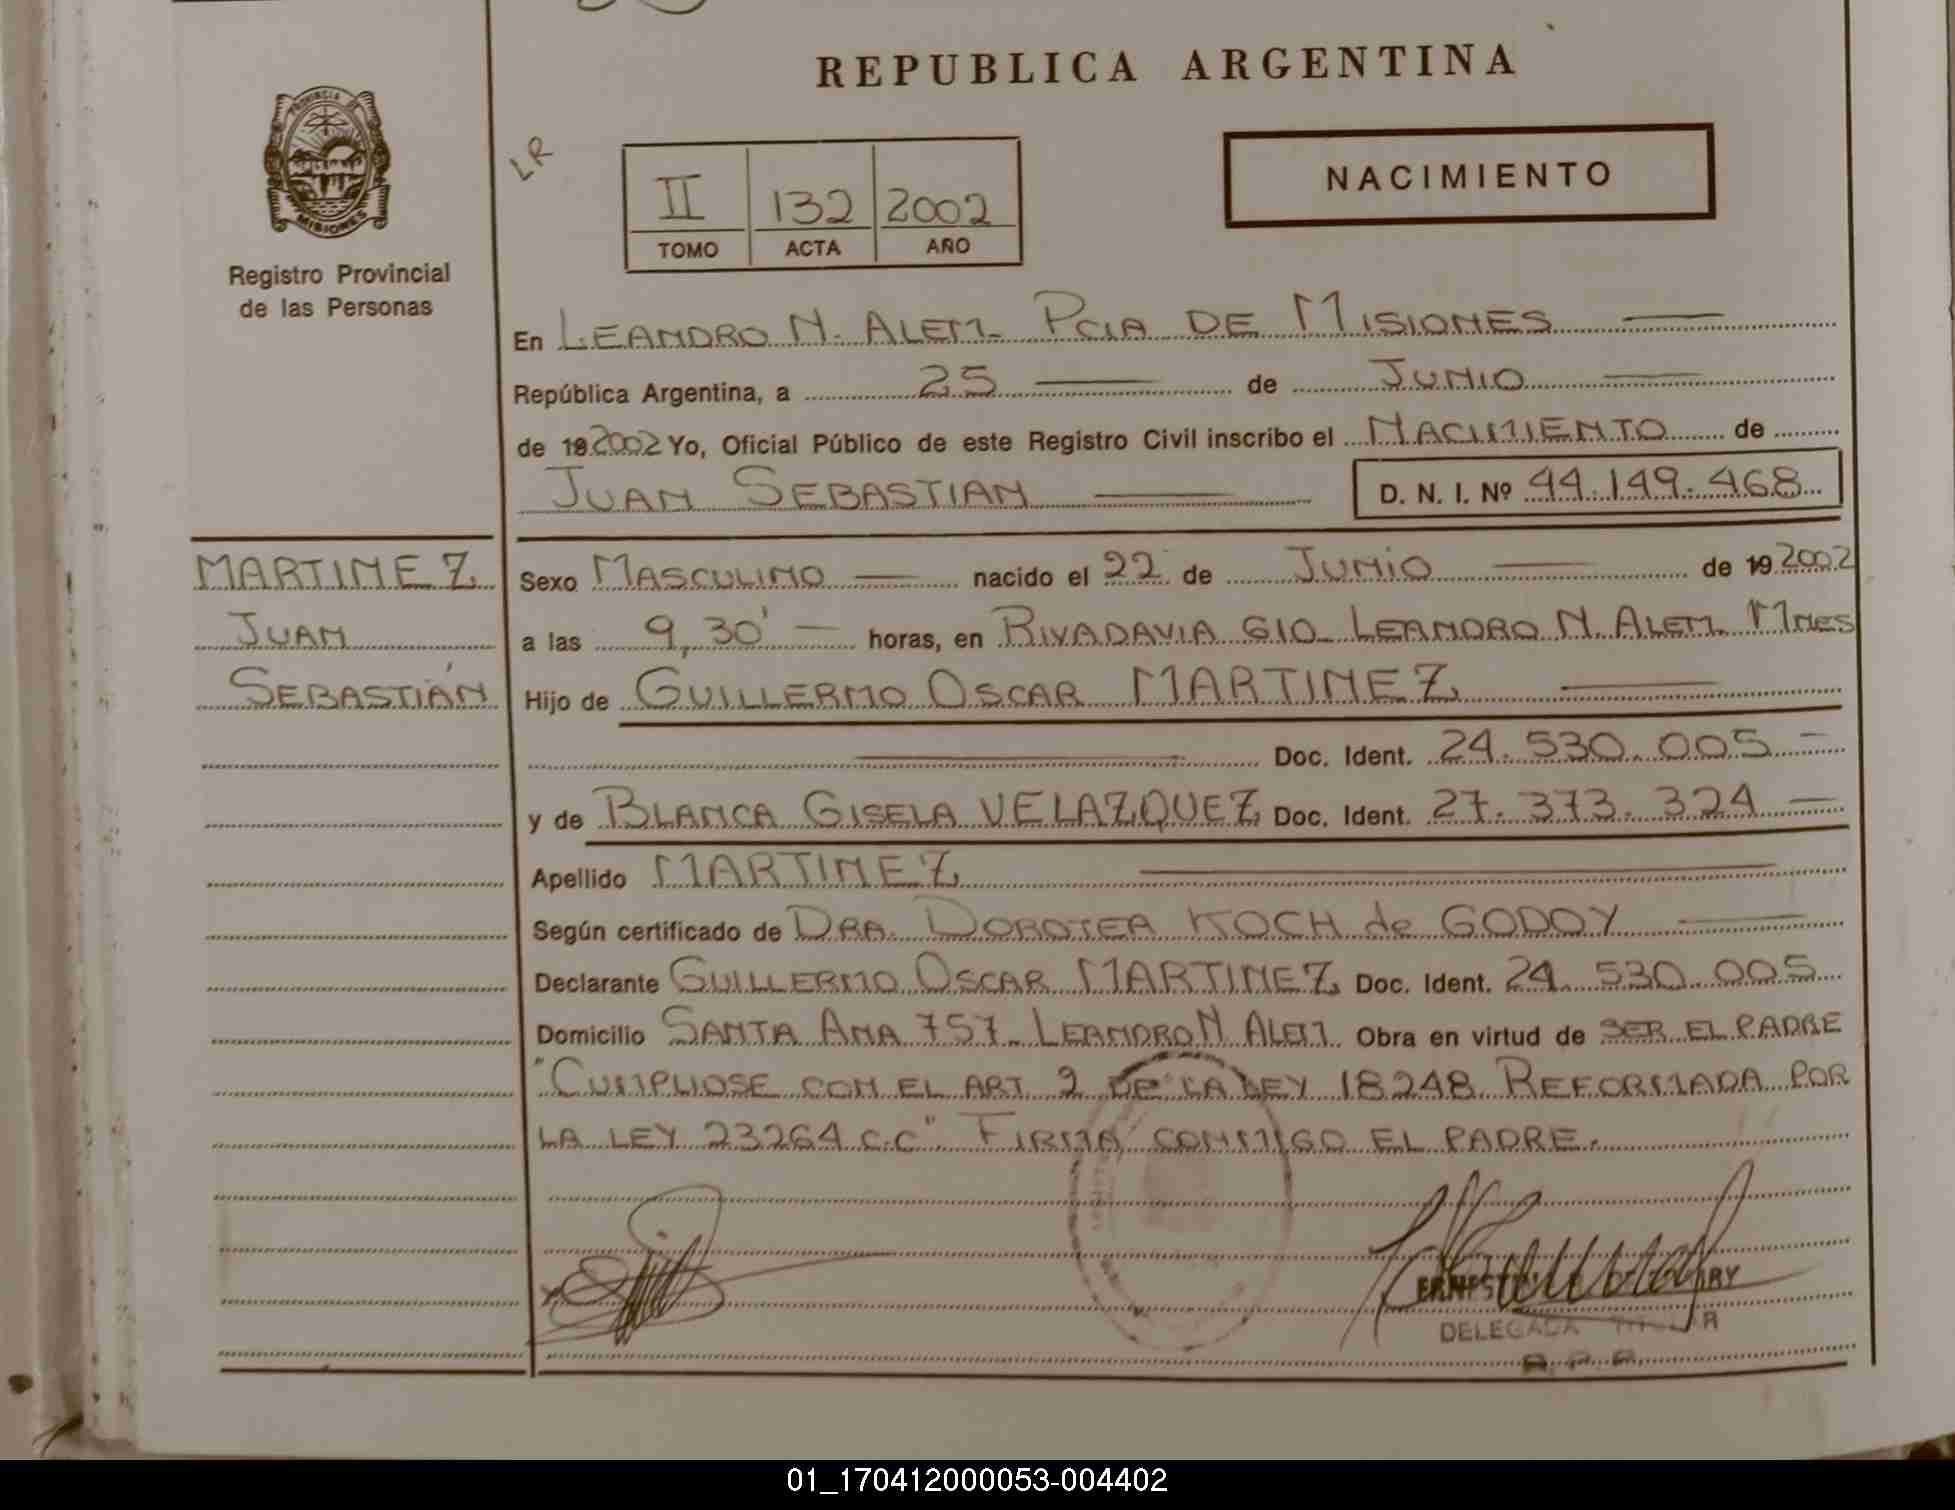 REPUBLICA ARGENTINA
PROVINCIA DE
MISIONES
Registro Provincial
de las Personas
LR
II 132 2002
TOMO ACTA AÑO
NACIMIENTO
En LEANDRO N. ALEM - PCIA DE MISIONES
República Argentina, a 25 de JUNIO
de 19 2002 Yo, Oficial Público de este Registro Civil inscribo el NACIMIENTO de
JUAN SEBASTIAN D. N. I. Nº 44.149.468
MARTINEZ
JUAN
SEBASTIÁN
Sexo MASCULINO nacido el 22 de JUNIO de 19 2002
a las 9,30' horas, en RIVADAVIA 610 - LEANDRO N. ALEM - MNES
Hijo de GUILLERMO OSCAR MARTINEZ
Doc. Ident. 24.530.005
y de BLANCA GISELA VELAZQUEZ Doc. Ident. 27.373.324
Apellido MARTINEZ
Según certificado de DRA. DOROTEA KOCH de GODOY
Declarante GUILLERMO OSCAR MARTINEZ Doc. Ident. 24.530.005
Domicilio SANTA ANA 757 - LEANDRO N ALEM Obra en virtud de SER EL PADRE
"CUMPLIOSE CON EL ART. 2 DE LA LEY 18248 REFORMADA POR
LA LEY 23264 C.C". FIRMA CONMIGO EL PADRE.
DELEGADA TITULAR
R.P.P.
01_170412000053-004402